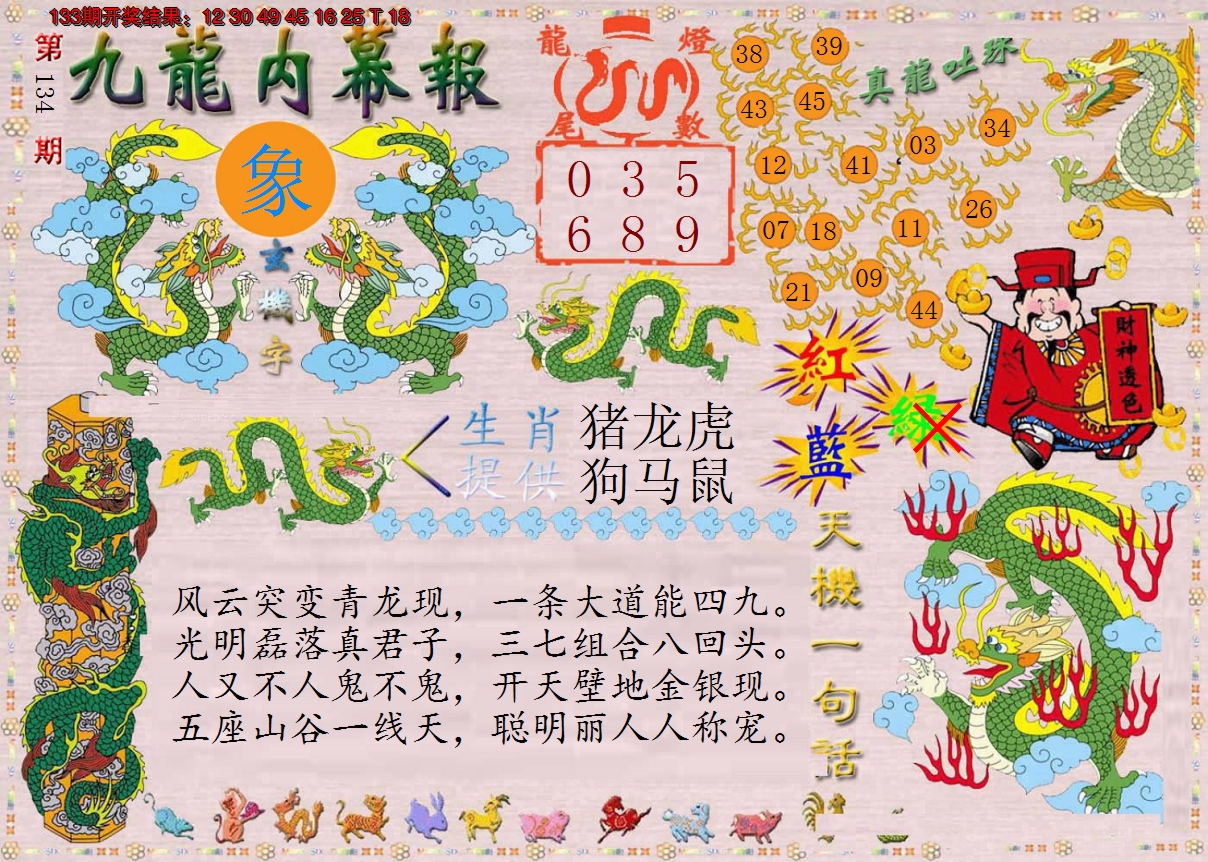 133期开奖结果：12 30 49 45 16 25 T 18
第134期
九龍内幕報
象
玄機字
龍燈
尾數
0 3 5
6 8 9
真龍吐珠
38 39
43 45
12 41 03 34
07 18 11 26
21 09 44
紅
綠
藍
財神透色
生肖 猪龙虎
提供 狗马鼠
天機一句话
风云突变青龙现，一条大道能四九。
光明磊落真君子，三七组合八回头。
人又不人鬼不鬼，开天壁地金银现。
五座山谷一线天，聪明丽人人称宠。